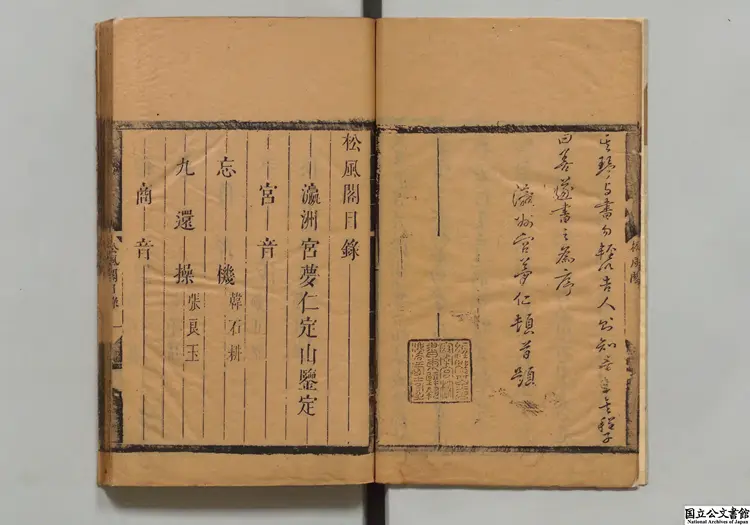 琴与書勿輕告人
曰善遂書之為序
瀛洲宮夢仁頓首題
松風閣
松風閣目錄
瀛洲宮夢仁定山鑒定
宮音
忘機 韓石耕
九還操 張良玉
商音
松風閣目錄 一
国立公文書館
National Archives of Japan